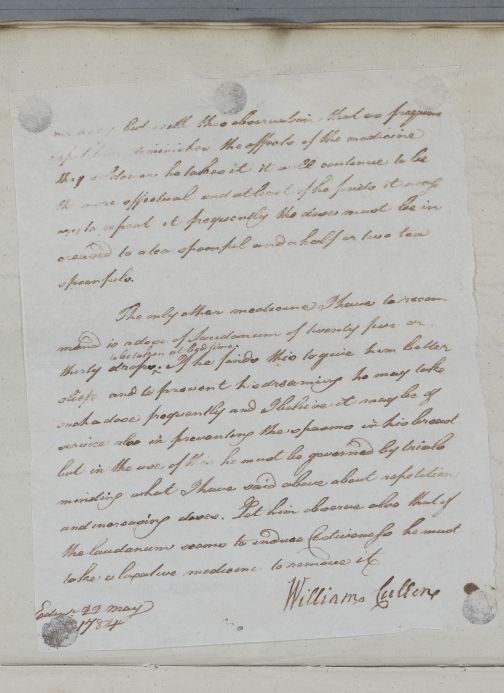 but with this observation that as frequent
repetition diminishes the effects of the medicine
the seldomer he takes it it will continue to be
the more effectual and at least if he finds it necess
ary to repeat it frequently the doses must be in
creased to a tea spoonful and a half or two tea
spoonfuls.
The only other medicine I have to recom
mend is a dose of Laudanum of twenty five or
to be taken at bed time
thirty drops. If he finds this to give him better
sleep and to prevent his dreaming he may take
such a dose frequently and I believe it may be of
service also in preventing the spasms in his breast
but in the use of this he must be governed by trials
minding what I have said above about repetition
and increasing doses. Let him observe also that if
the laudanum seems to induce Costiveness he must
take a laxative medicine to remove it
William Cullen
Edinr 22 May
1784